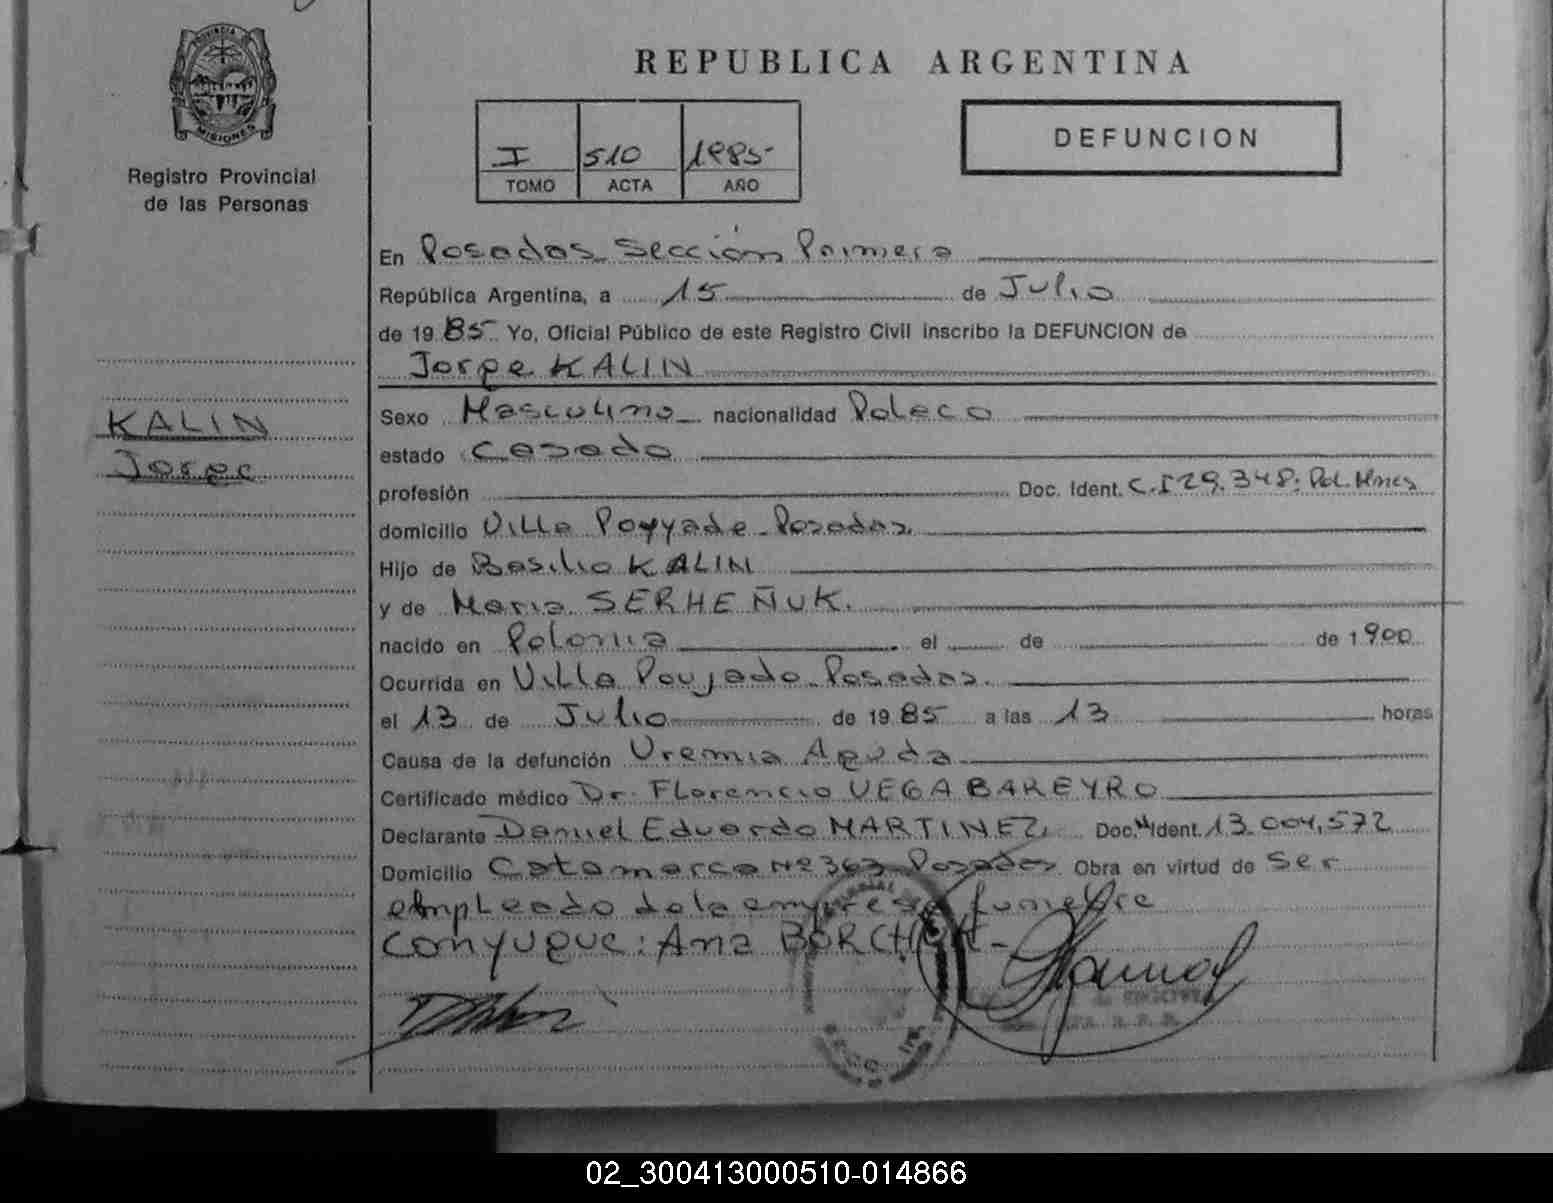 PROVINCIA
MISIONES
Registro Provincial
de las Personas
KALIN
Jorge
REPUBLICA ARGENTINA
I 510 1985
TOMO ACTA AÑO
DEFUNCION
En Posadas Sección Primera
República Argentina, a 15 de Julio
de 19 85 Yo, Oficial Público de este Registro Civil inscribo la DEFUNCION de
Jorge KALIN
Sexo Masculino nacionalidad Polaco
estado Casado
profesión Doc. Ident. C.I 29.348. Pol. Mnes
domicilio Villa Poyyade - Posadas.
Hijo de Basilio KALIN
y de Maria SERHEÑUK.
nacido en Polonia el de de 1900
Ocurrida en Villa Poujado - Posadas.
el 13 de Julio de 19 85 a las 13 horas
Causa de la defunción Uremia Aguda
Certificado médico Dr. Florencio VEGA BAREYRO
Declarante Daniel Eduardo MARTINEZ, Doc. Ident. 13.004,572
Domicilio Catamarca Nº 363 Posadas Obra en virtud de ser
empleado de la empresa funebre
Conyugue: Ana BORCHUK-
02_300413000510-014866